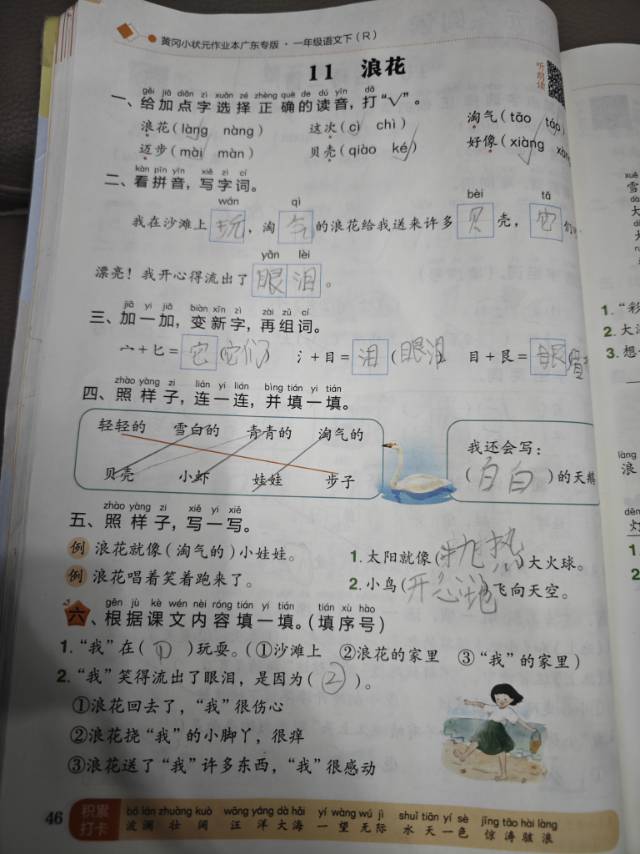 黄冈小状元作业本广东专版·一年级语文下（R）
11 浪花
听朗读
gěi jiā diǎn zì xuǎn zé zhèng què de dú yīn dǎ
一、给加点字选择正确的读音，打“√”。
浪花（làng nàng） 这次（cì chì） 淘气（tāo táo）
迈步（mài màn） 贝壳（qiào ké） 好像（xiàng xàng
kàn pīn yīn xiě zì cí
二、看拼音，写字词。
wán qì bèi tā
我在沙滩上玩，淘气的浪花给我送来许多贝壳，它们
yǎn lèi
漂亮！我开心得流出了眼泪。
jiā yi jiā biàn xīn zì zài zǔ cí
三、加一加，变新字，再组词。
宀+匕=它(它们) 氵+目=泪(眼泪) 目+艮=眼
zhào yàng zi lián yi lián bìng tián yi tián
四、照样子，连一连，并填一填。
轻轻的 雪白的 青青的 淘气的
贝壳 小虾 娃娃 步子
我还会写：
（白白）的天鹅
zhào yàng zi xiě yi xiě
五、照样子，写一写。
例 浪花就像（淘气的）小娃娃。
例 浪花唱着笑着跑来了。
1.太阳就像(热大火球。
2.小鸟(开飞向天空。
gēn jù kè wén nèi róng tián yi tián tián xù hào
六、根据课文内容填一填。（填序号）
1.“我”在（①）玩耍。（①沙滩上 ②浪花的家里 ③“我”的家里）
2.“我”笑得流出了眼泪，是因为（②）。
①浪花回去了，“我”很伤心
②浪花挠“我”的小脚丫，很痒
③浪花送了“我”许多东西，“我”很感动
46
积累打卡
bō lán zhuàng kuò wāng yáng dà hǎi yí wàng wú jì shuǐ tiān yí sè jīng tāo hài làng
波澜壮阔 汪洋大海 一望无际 水天一色 惊涛骇浪
1.“彩
2.大海
3.想